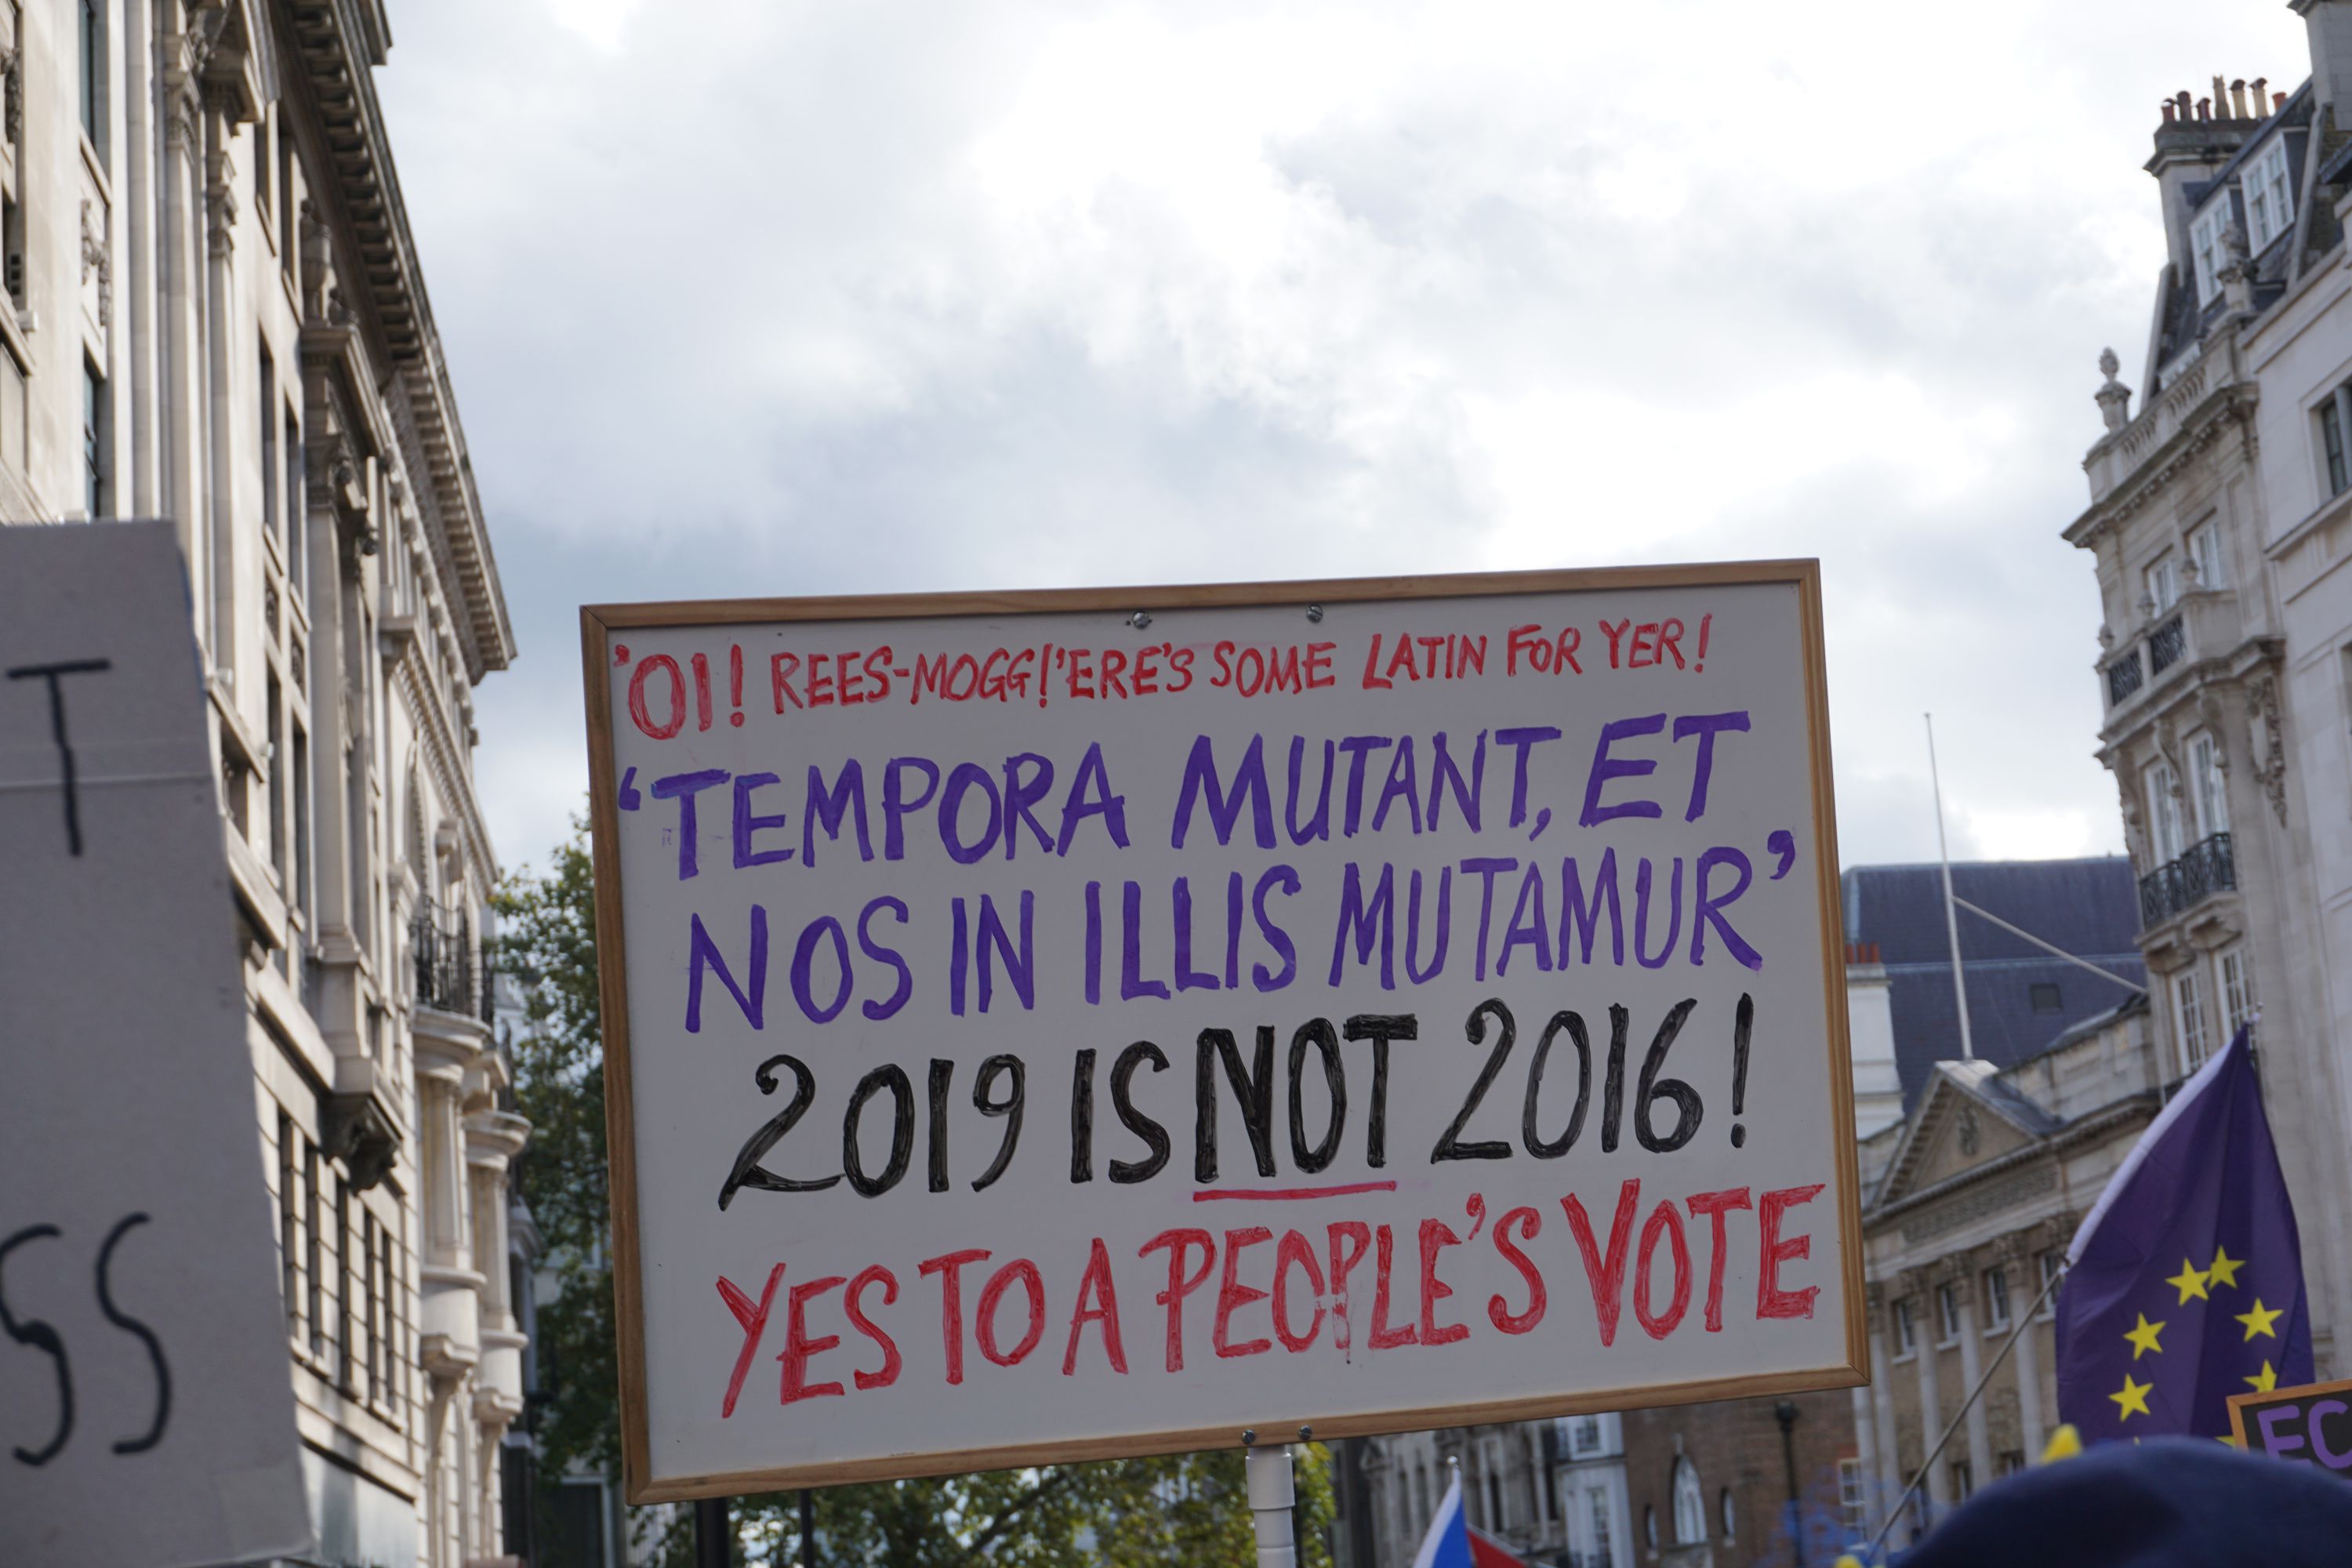 'OI! REES-MOGG! 'ERE'S SOME LATIN FOR YER!
'TEMPORA MUTANT, ET
NOS IN ILLIS MUTAMUR'
2019 IS NOT 2016!
YES TO A PEOPLE'S VOTE
T
SS
EC